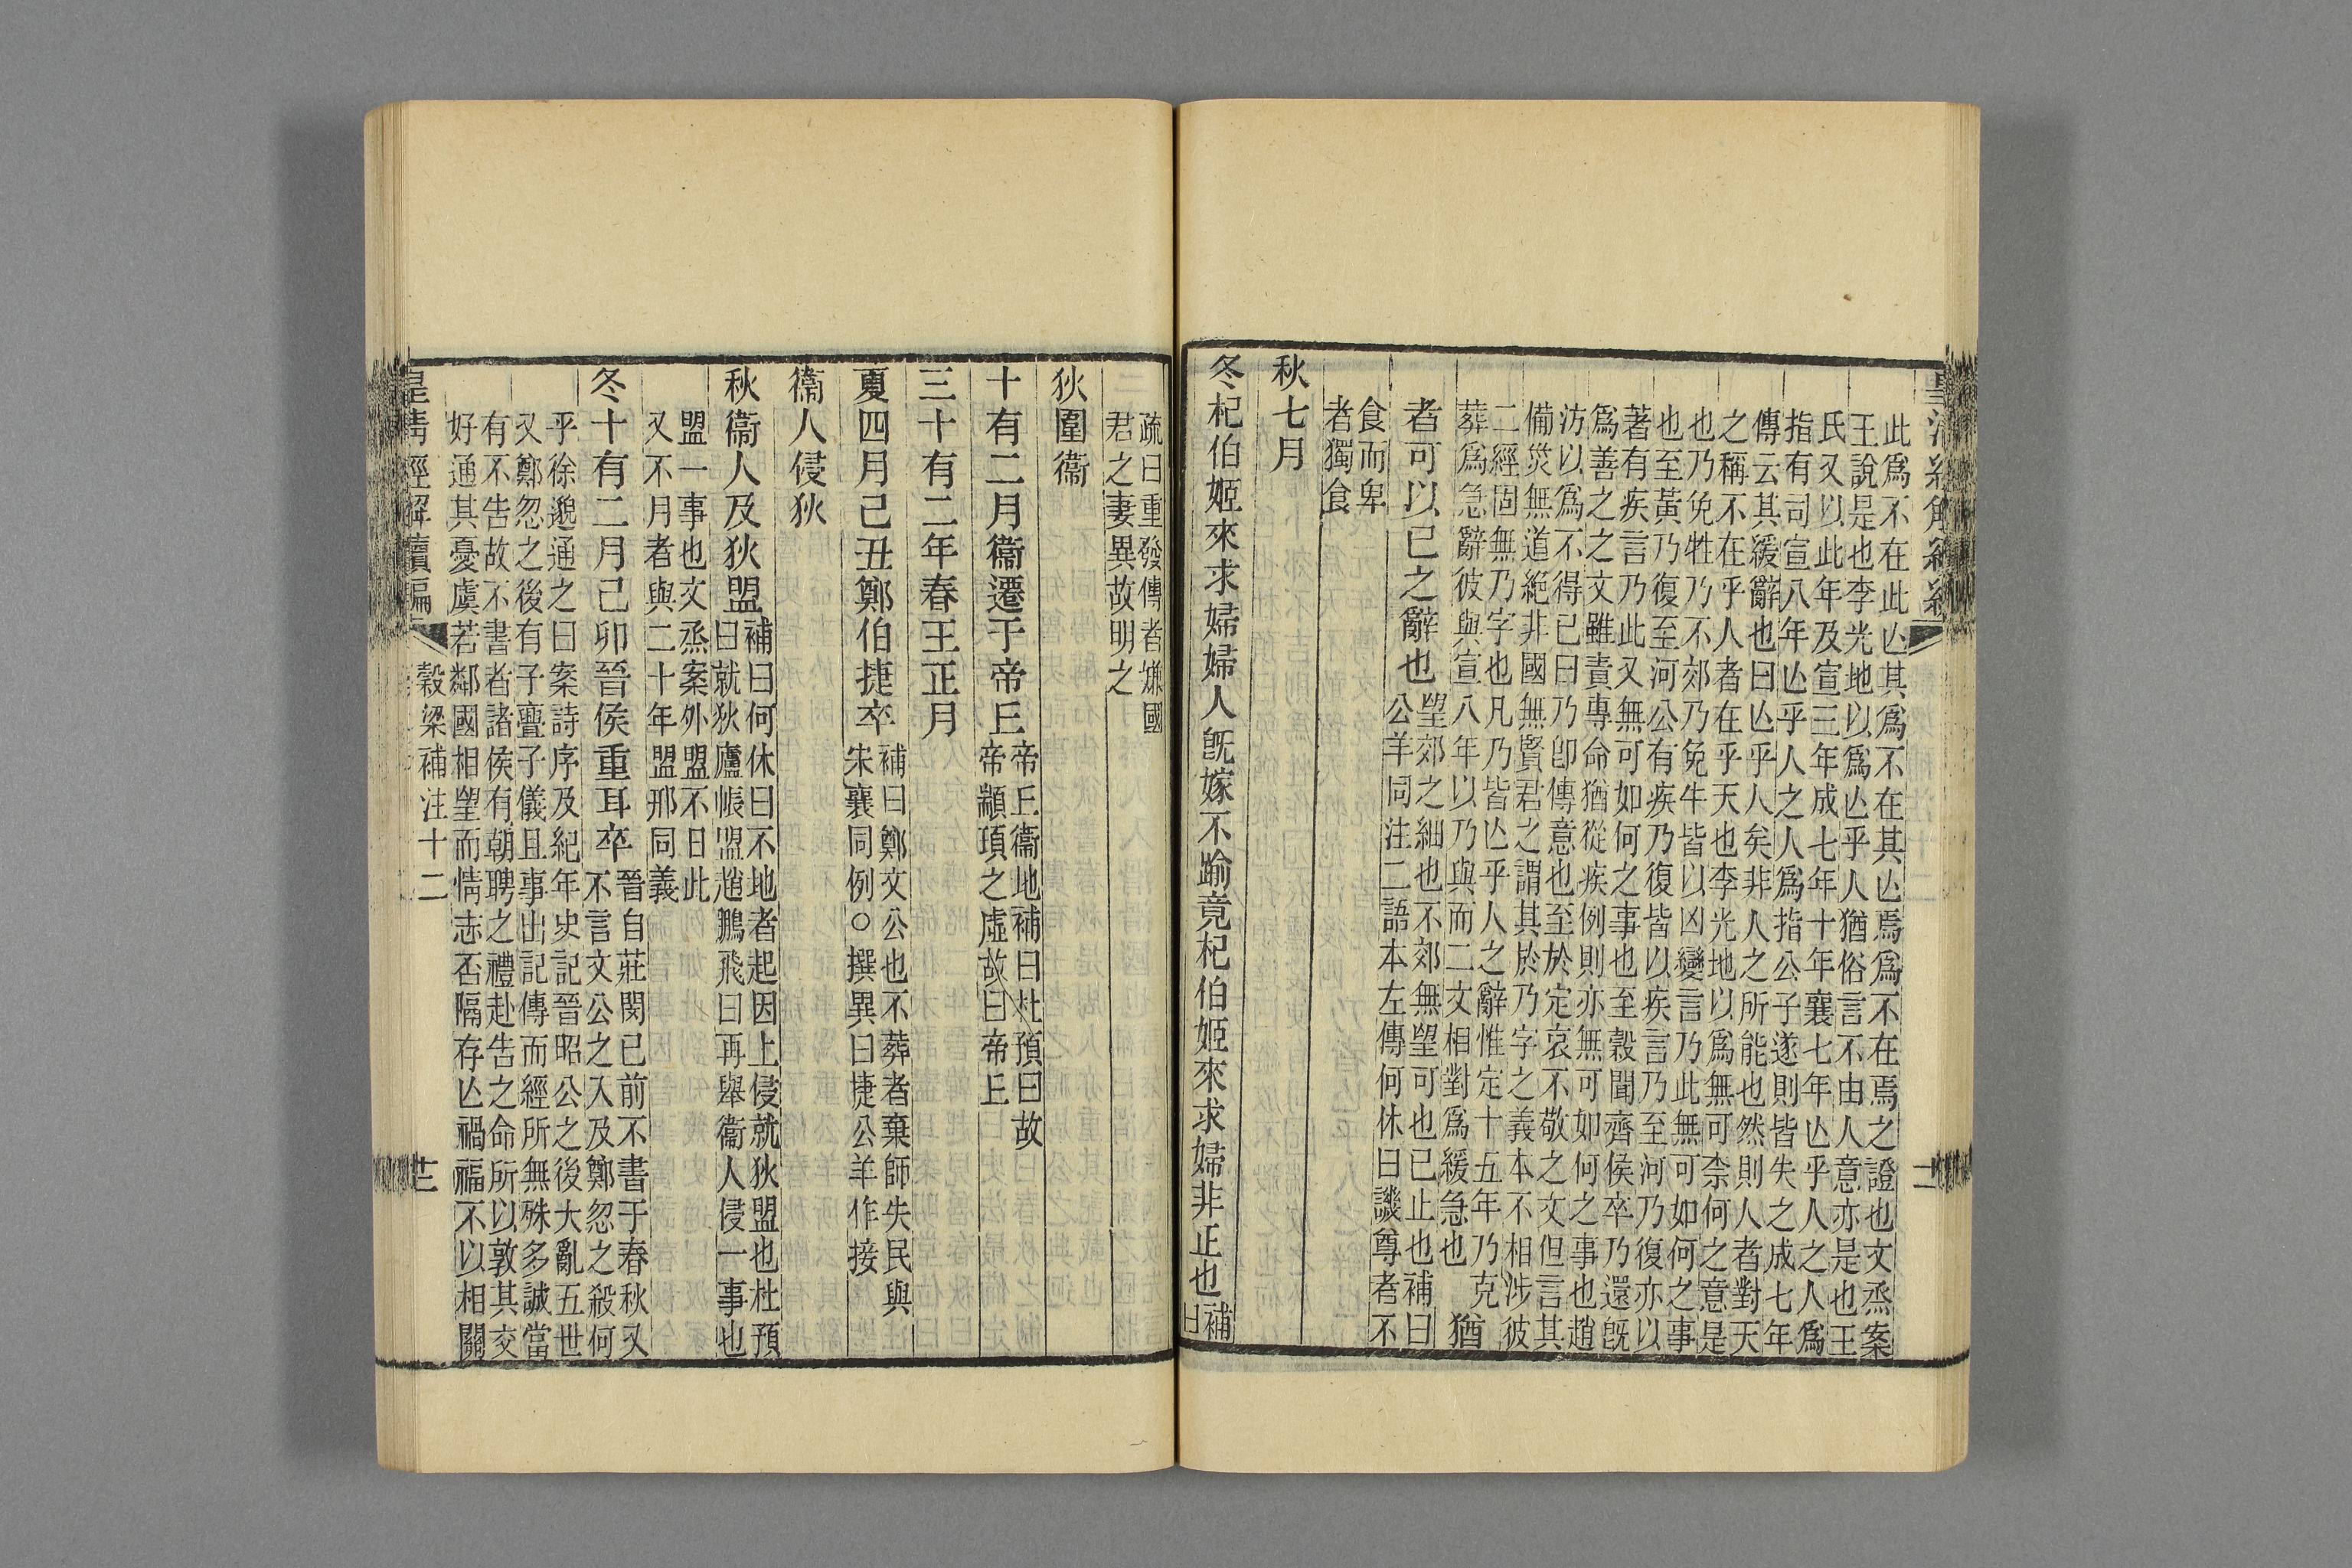 此爲不在此亾其爲不在其亾焉爲不在焉之證也文烝案
王說是也李光地以爲亾乎人猶俗言不由人意亦是也王
氏又以此年及宣三年成七年十年襄七年亾乎人之人爲
指有司宣八年亾乎人之人爲指公子遂則皆失之成七年
傳云其緩辭也曰亾乎人矣非人之所能也然則人者對天
之稱不在乎人者在乎天也李光地以爲無可柰何之意是
也乃免牲乃不郊乃免牛皆以凶變言乃此無可如何之事
也至黃乃復至河公有疾乃復皆以疾言乃至河乃復亦以
著有疾言乃此又無可如何之事也至穀聞齊侯卒乃還旣
爲善之之文雖責專命猶從疾例則亦無可如何之事也趙
汸以爲不得已曰乃卽傳意也至於定哀不敬之文但言其
備災無道絶非國無賢君之謂其於乃字之義本不相涉彼
二經固無乃字也凡乃皆亾乎人之辭惟定十五年乃克
葬爲急辭彼與宣八年以乃與而二文相對爲緩急也
猶
者可以已之辭也
望郊之細也不郊無望可也已止也補曰
公羊同注二語本左傳何休曰譏尊者不
食而卑
者獨食
秋七月
冬杞伯姬來求婦婦人旣嫁不踰竟杞伯姬來求婦非正也
補
曰
疏曰重發傳者嫌國
君之妻異故明之
狄圍衞
十有二月衞遷于帝丘
帝丘衞地補曰杜預曰故
帝顓頊之虛故曰帝丘
三十有二年春王正月
夏四月己丑鄭伯捷卒
補曰鄭文公也不葬者棄師失民與
宋襄同例○撰異曰捷公羊作接
衞人侵狄
秋衞人及狄盟
補曰何休曰不地者起因上侵就狄盟也杜預
曰就狄廬帳盟趙鵬飛曰再舉衞人侵一事也
盟一事也文烝案外盟不日此
又不月者與二十年盟邢同義
冬十有二月己卯晉侯重耳卒
晉自莊閔已前不書于春秋又
不言文公之入及鄭忽之殺何
乎徐邈通之曰案詩序及紀年史記晉昭公之後大亂五世
又鄭忽之後有子亹子儀且事出記傳而經所無殊多誠當
有不告故不書者諸侯有朝聘之禮赴告之命所以敦其交
好通其憂虞若鄰國相望而情志否隔存亾禍福不以相關
皇清經解續編
穀梁補注十二